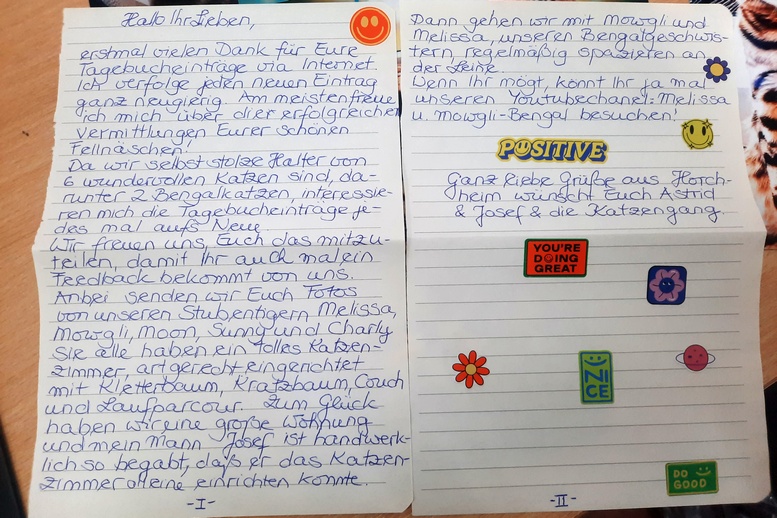 Hallo Ihr Lieben,
erstmal vielen Dank für Eure
Tagebucheinträge via Internet.
Ich verfolge jeden neuen Eintrag
ganz neugierig. Am meisten freue
ich mich über die erfolgreichen
Vermittlungen Eurer schönen
Fellnäschen!
Da wir selbst stolze Halter von
6 wundervollen Katzen sind, da-
runter 2 Bengalkatzen, interessie-
ren mich die Tagebucheinträge je-
des mal aufs Neue.
Wir freuen uns, Euch das mitzu-
teilen, damit Ihr auch mal ein
Feedback bekommt von uns.
Anbei senden wir Euch Fotos
von unseren Stubentigern Melissa,
Mowgli, Moon, Sunny und Charly
Sie alle haben ein tolles Katzen-
zimmer, artgerecht eingerichtet
mit Kletterbaum, Kratzbaum, Couch
und Laufparcour. Zum Glück
haben wir eine große Wohnung
und mein Mann Josef ist handwerk-
lich so begabt, daß er das Katzen-
zimmer alleine einrichten konnte.
-I-
Dann gehen wir mit Mowgli und
Melissa, unseren Bengalgeschwis-
tern, regelmäßig spazieren an
der Leine.
Wenn Ihr mögt, könnt Ihr ja mal
unseren Youtubechanel: Melissa
u. Mowgli-Bengal besuchen!
POSITIVE
Ganz liebe Grüße aus Horch-
heim wünscht Euch Astrid
& Josef & die Katzengang.
YOU'RE
DOING
GREAT
NICE
DO
GOOD
-II-